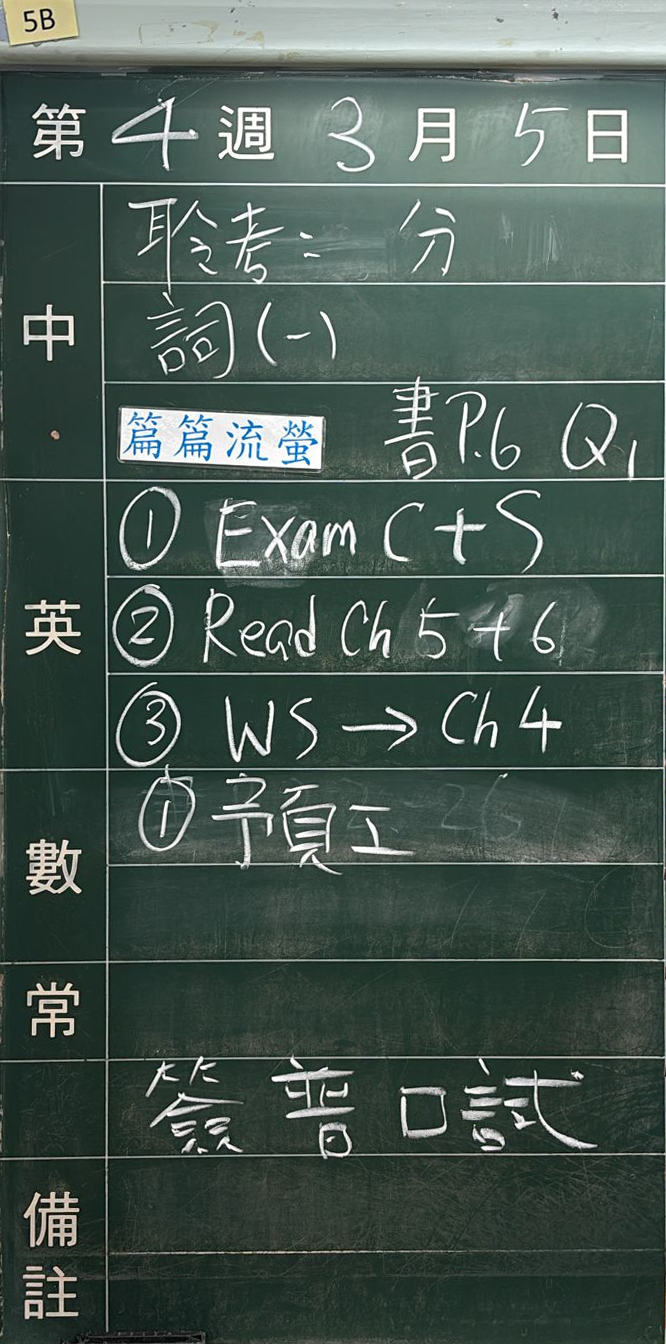 5B
第 4 週 3 月 5 日
中
聆考= 分
詞(一)
篇篇流螢 書P.6 Q1
英
① Exam C+S
② Read Ch 5+6
③ WS → Ch 4
數
① 預工
常
簽普口試
備註